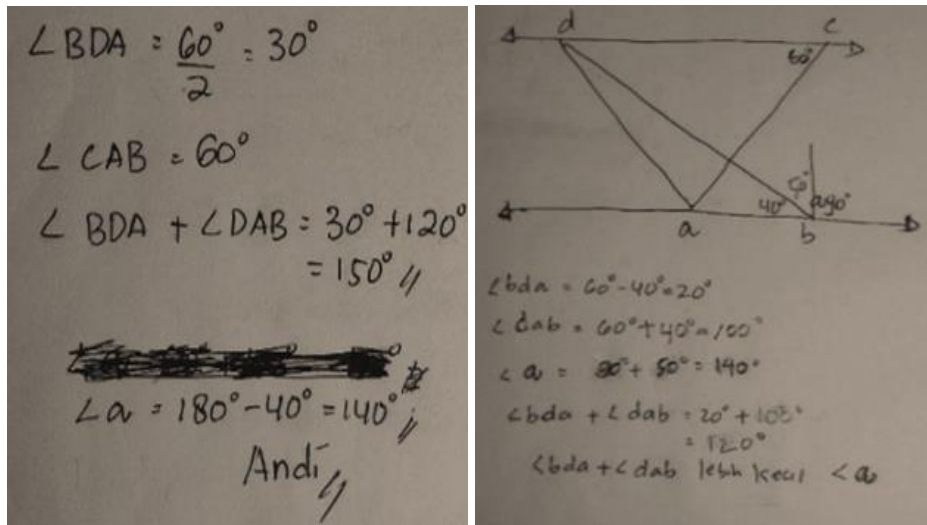 ∠BDA = 60° = 30°
2
∠CAB = 60°
∠BDA + ∠DAB = 30° + 120°
= 150° //
∠a = 180° - 40° = 140° //
Andi //
d c
60°
40° a 90°
a b
∠bda = 60° - 40° = 20°
∠dab = 60° + 40° = 100°
∠a = 90° + 50° = 140°
∠bda + ∠dab = 20° + 100°
= 120°
∠bda + ∠dab lebih kecil ∠a